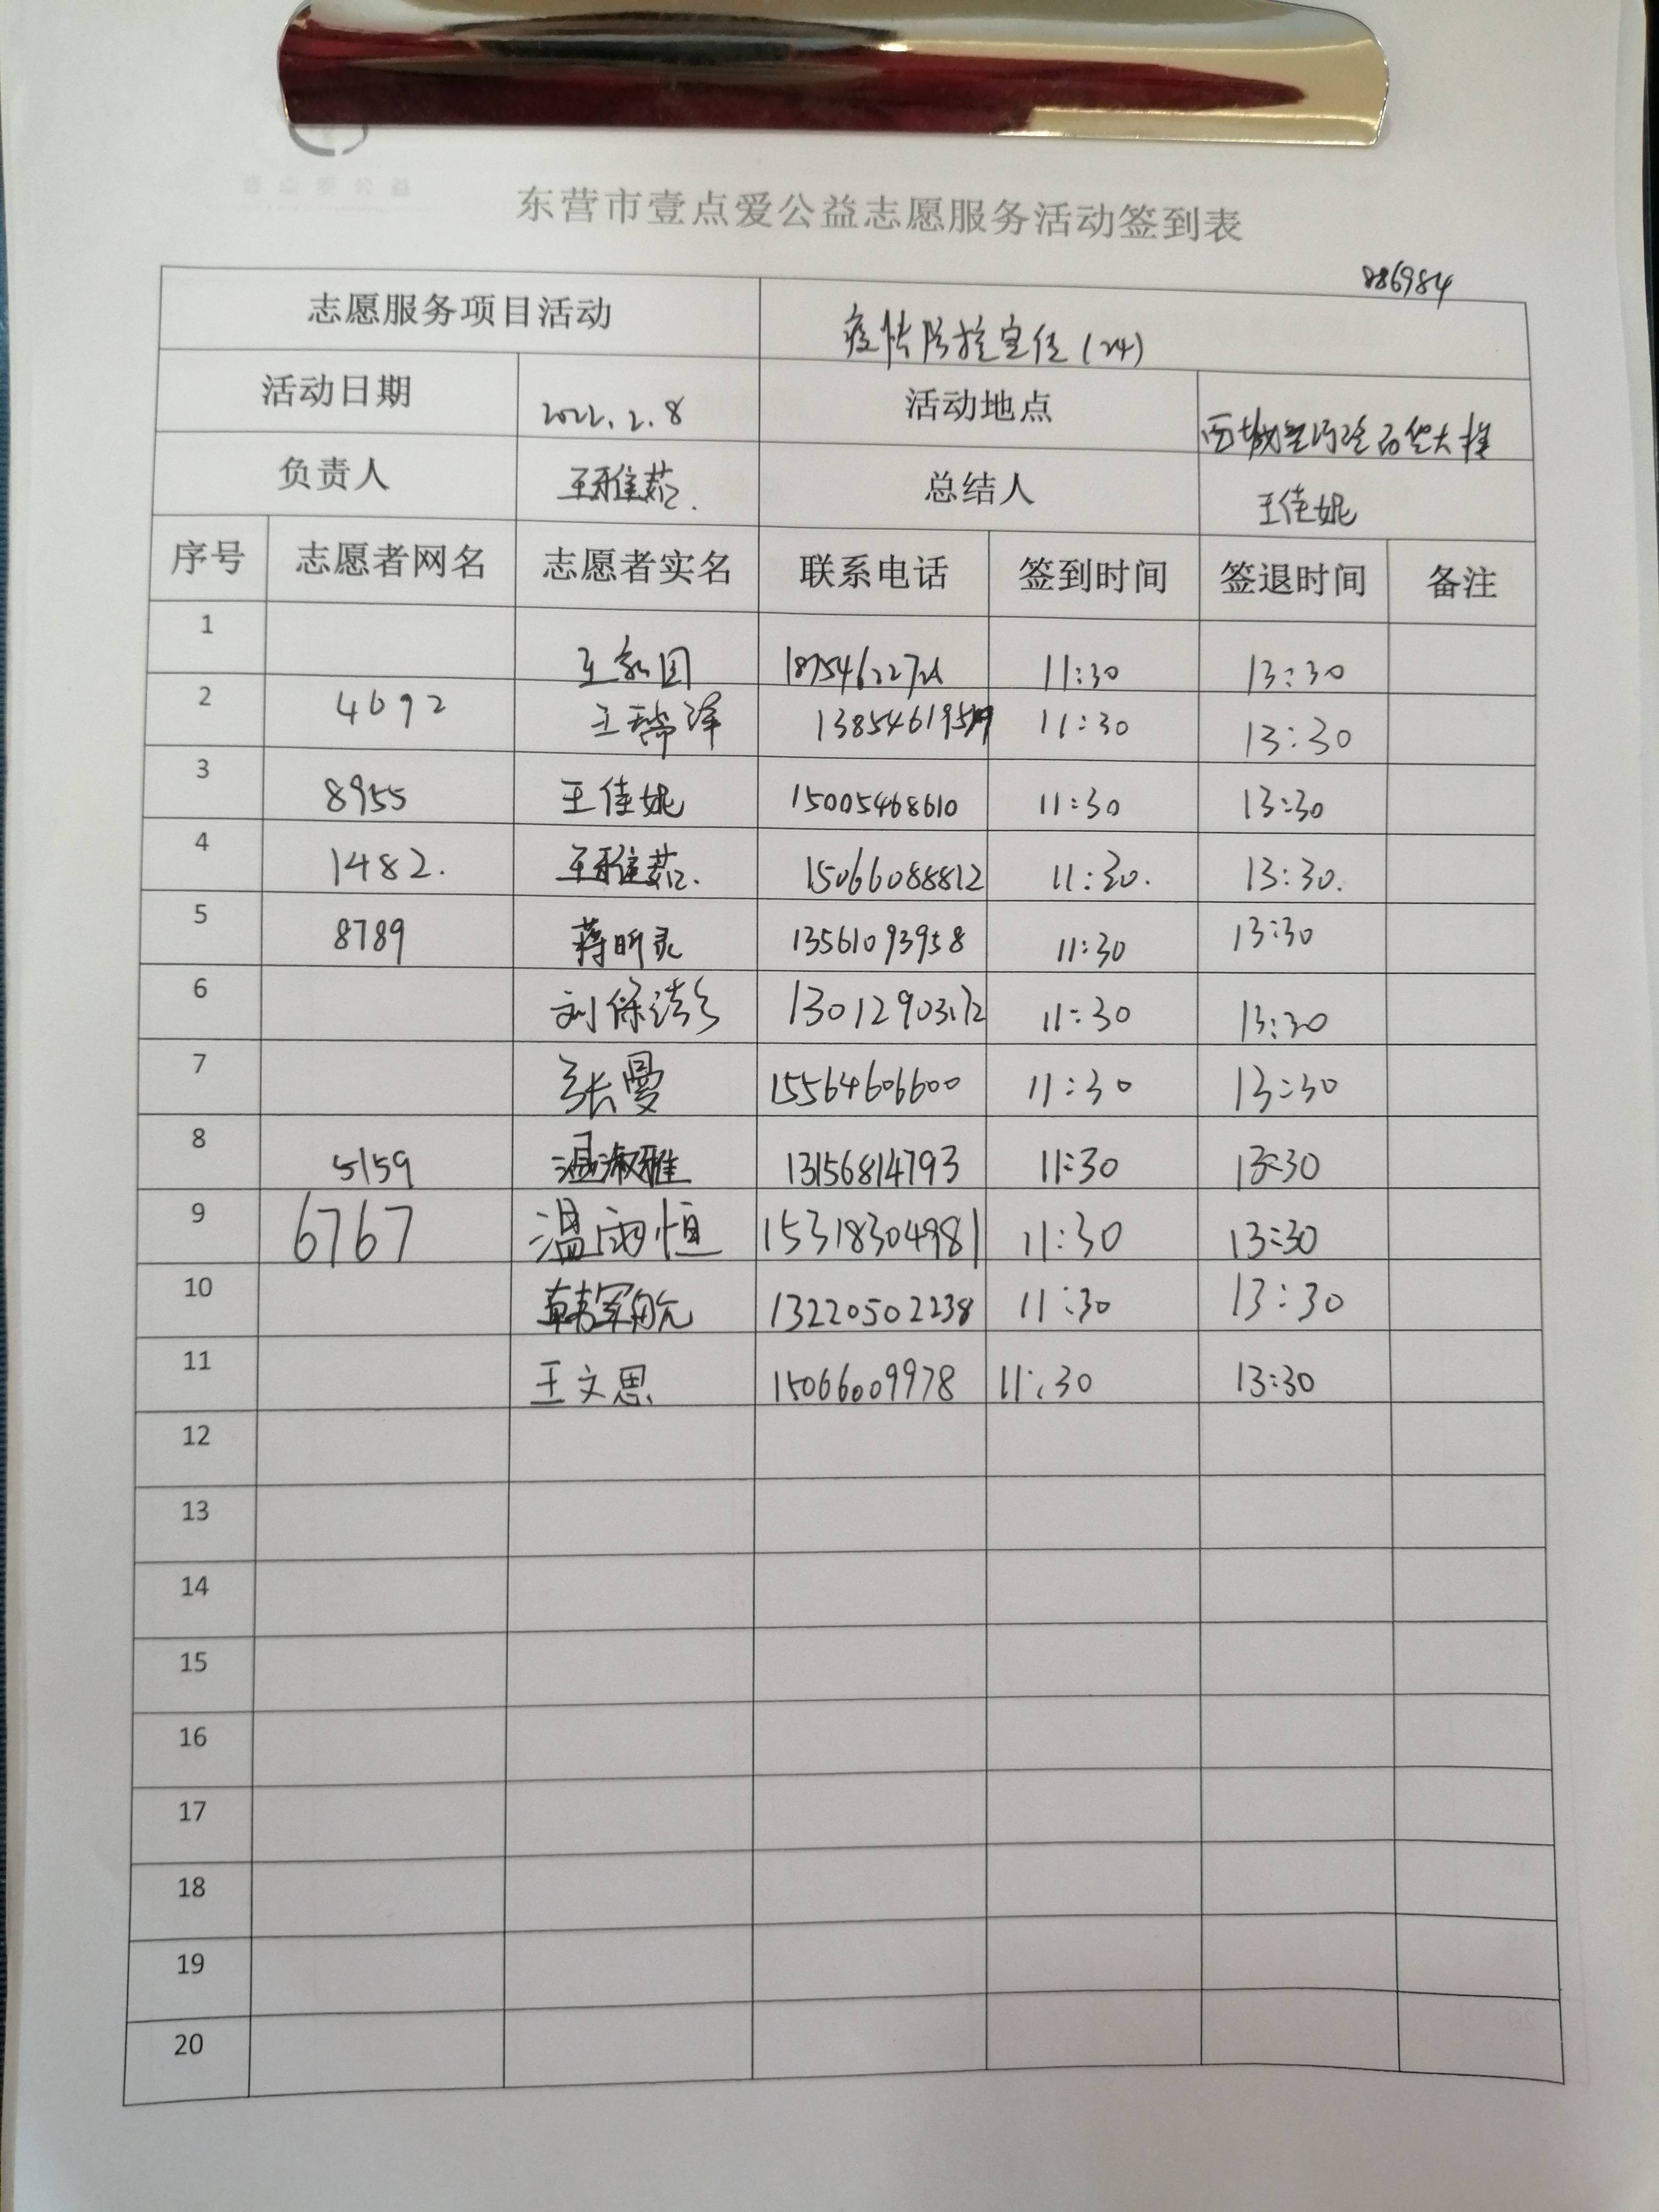 壹点爱公益
东营市壹点爱公益志愿服务活动签到表
886984
志愿服务项目活动 疫情防控宣传(24)
活动日期 2022.2.8 活动地点 西城
负责人 王雅茹. 总结人 王佳妮
序号 志愿者网名 志愿者实名 联系电话 签到时间 签退时间 备注
1 王家团 11:30 13:30
2 4692 王瑞泽 11:30 13:30
3 8955 王佳妮 15005468610 11:30 13:30
4 1482. 王雅茹. 15066088812 11:30. 13:30.
5 8789 蒋昕灵 13561093958 11:30 13:30
6 13012903172 11:30 13:30
7 张曼 15564606600 11:30 13:30
8 5159 温淑雅 13156814793 11:30 13:30
9 6767 温雨恒 15318304981 11:30 13:30
10 韩军航 13220502238 11:30 13:30
11 王文思 15066009978 11:30 13:30
12
13
14
15
16
17
18
19
20